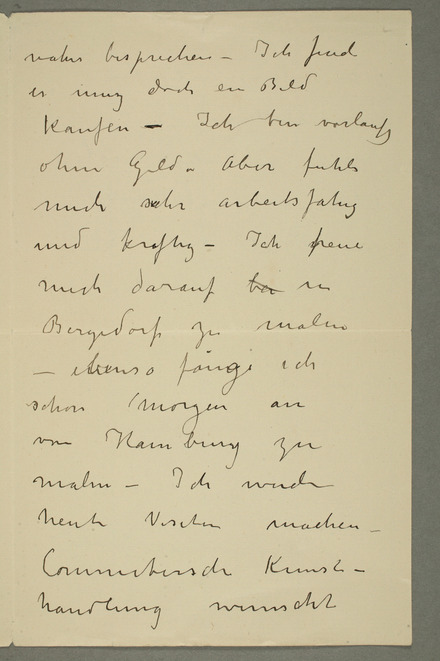 näher besprechen – Ich find
er muss doch ein Bild
kaufen – Ich bin vorläufig
ohne Geld. Aber fühle
mich sehr arbeitsfähig
und kräftig – Ich freue
mich darauf in
Bergedorf zu malen
– ebenso fange ich
schon morgen an
von Hamburg zu
malen – Ich werde
heute Visiten machen –
Commetersche Kunst–
handlung wünscht